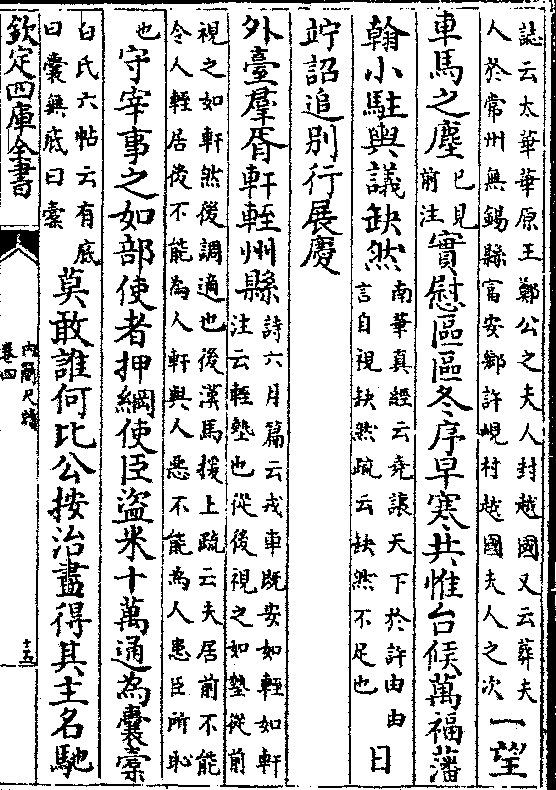 誌云太華華原王鄭公之夫人封越國又云葬夫
人於常州無錫縣富安鄉許峴村越國夫人之次
一望
車馬之塵
已見
前注
實慰區區冬序早寒共惟台候萬福藩
翰小駐輿議缺然
南華真經云堯讓天下於許由由
言自視缺然疏云缺然不足也
日
竚詔追别行展慶
外臺羣胥軒輊州縣
詩六月篇云戎車既安如輊如軒
注云輊墊也從後視之如墊從前
視之如軒然後調適也後漢馬援上疏云夫居前不能
令人輊居後不能為人軒與人惡不能為人患臣所恥
也
守宰事之如部使者押綱使臣盜米十萬通為囊橐
白氏六帖云有底
曰囊無底曰橐
莫敢誰何比公按治盡得其主名馳
欽定四庫全書
內簡尺牘
卷四
十五